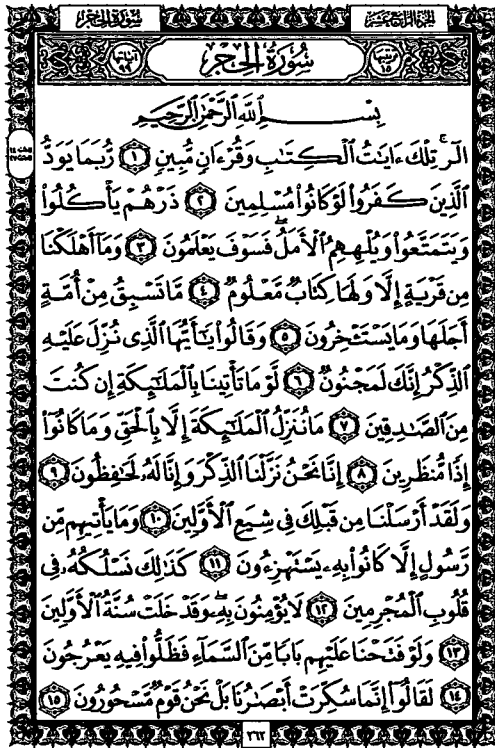 سورة الحجر
الجزء الرابع عشر
سُورَةُ الحِجْرِ
ترتيبها ١٥
آياتها ٩٩
بِسْمِ اللَّهِ الرَّحْمَٰنِ الرَّحِيمِ
الٓر ۚ تِلْكَ ءَايَٰتُ ٱلْكِتَٰبِ وَقُرْءَانٍ مُّبِينٍ ١ رُّبَمَا يَوَدُّ
ٱلَّذِينَ كَفَرُوا۟ لَوْ كَانُوا۟ مُسْلِمِينَ ٢ ذَرْهُمْ يَأْكُلُوا۟
وَيَتَمَتَّعُوا۟ وَيُلْهِهِمُ ٱلْأَمَلُ ۖ فَسَوْفَ يَعْلَمُونَ ٣ وَمَآ أَهْلَكْنَا
مِن قَرْيَةٍ إِلَّا وَلَهَا كِتَابٌ مَّعْلُومٌ ٤ مَّا تَسْبِقُ مِنْ أُمَّةٍ
أَجَلَهَا وَمَا يَسْتَـْٔخِرُونَ ٥ وَقَالُوا۟ يَٰٓأَيُّهَا ٱلَّذِى نُزِّلَ عَلَيْهِ
ٱلذِّكْرُ إِنَّكَ لَمَجْنُونٌ ٦ لَّوْ مَا تَأْتِينَا بِٱلْمَلَٰٓئِكَةِ إِن كُنتَ
مِنَ ٱلصَّٰدِقِينَ ٧ مَا نُنَزِّلُ ٱلْمَلَٰٓئِكَةَ إِلَّا بِٱلْحَقِّ وَمَا كَانُوٓا۟
إِذًا مُّنظَرِينَ ٨ إِنَّا نَحْنُ نَزَّلْنَا ٱلذِّكْرَ وَإِنَّا لَهُۥ لَحَٰفِظُونَ ٩
وَلَقَدْ أَرْسَلْنَا مِن قَبْلِكَ فِى شِيَعِ ٱلْأَوَّلِينَ ١٠ وَمَا يَأْتِيهِم مِّن
رَّسُولٍ إِلَّا كَانُوا۟ بِهِۦ يَسْتَهْزِءُونَ ١١ كَذَٰلِكَ نَسْلُكُهُۥ فِى
قُلُوبِ ٱلْمُجْرِمِينَ ١٢ لَا يُؤْمِنُونَ بِهِۦ ۖ وَقَدْ خَلَتْ سُنَّةُ ٱلْأَوَّلِينَ
١٣ وَلَوْ فَتَحْنَا عَلَيْهِم بَابًا مِّنَ ٱلسَّمَآءِ فَظَلُّوا۟ فِيهِ يَعْرُجُونَ
١٤ لَقَالُوٓا۟ إِنَّمَا سُكِّرَتْ أَبْصَٰرُنَا بَلْ نَحْنُ قَوْمٌ مَّسْحُورُونَ ١٥
٢٦٢